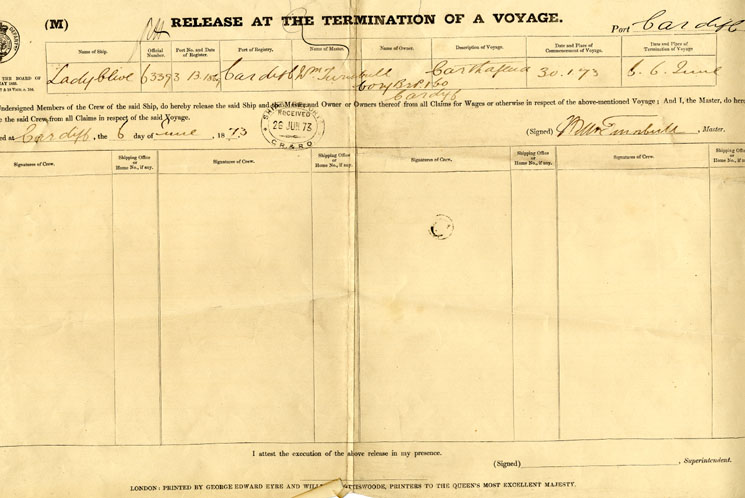 (M)
RELEASE AT THE TERMINATION OF A VOYAGE.
Port Cardiff
Name of Ship.
Official Number.
Port No. and Date of Register.
Port of Registry.
Name of Master.
Name of Owner.
Description of Voyage.
Date and Place of Commencement of Voyage.
Date and Place of Termination of Voyage
THE BOARD OF
Lady Clive 63393 13. Cardiff Wm Turnbull Cory Bros & Co Cardiff Carthagena 30.1.73 6. June
Undersigned Members of the Crew of the said Ship, do hereby release the said Ship and the Master and Owner or Owners thereof from all Claims for Wages or otherwise in respect of the above-mentioned Voyage; And I, the Master, do here
the said Crew from all Claims in respect of the said Voyage.
ed at Cardiff, the 6 day of June, 1873
RECEIVED
28 JUN 73
(Signed) Wm Turnbull, Master.
Signatures of Crew.
Shipping Office or Home No., if any.
Signatures of Crew.
Shipping Office or Home No., if any.
Signatures of Crew.
Shipping Office or Home No., if any.
Signatures of Crew.
Shipping Office or Home No., if any.
I attest the execution of the above release in my presence.
(Signed) , Superintendent.
LONDON: PRINTED BY GEORGE EDWARD EYRE AND WILL TTISWOODE, PRINTERS TO THE QUEEN'S MOST EXCELLENT MAJESTY.